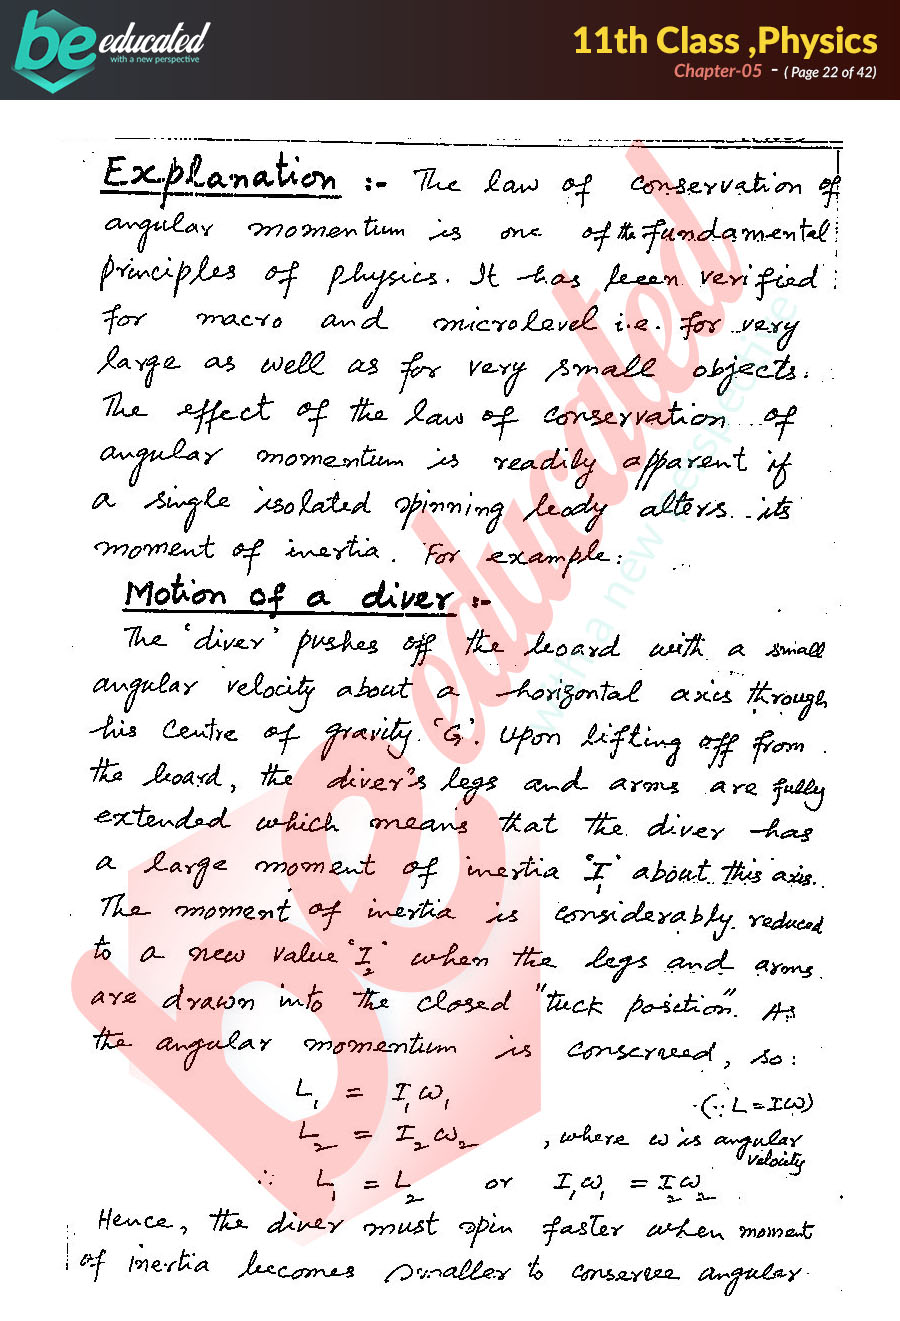 be educated
with a new perspective
11th Class ,Physics
Chapter-05 - ( Page 22 of 42)
Explanation :- The law of conservation of
angular momentum is one of the fundamental
principles of physics. It has been verified
for macro and microlevel i.e. for very
large as well as for very small objects.
The effect of the law of conservation of
angular momentum is readily apparent if
a single isolated spinning body alters its
moment of inertia. For example:
Motion of a diver :-
The 'diver' pushes off the board with a small
angular velocity about a horizontal axis through
his centre of gravity 'G'. Upon lifting off from
the board, the diver's legs and arms are fully
extended which means that the diver has
a large moment of inertia 'I₁' about this axis.
The moment of inertia is considerably reduced
to a new value 'I₂' when the legs and arms
are drawn into the closed "tuck position". As
the angular momentum is conserved, so:
L₁ = I₁ω₁ (∵ L = Iω)
L₂ = I₂ω₂ , where ω is angular
velocity
∴ L₁ = L₂ or I₁ω₁ = I₂ω₂
Hence, the diver must spin faster when moment
of inertia becomes smaller to conserve angular
be educated
with a new perspective